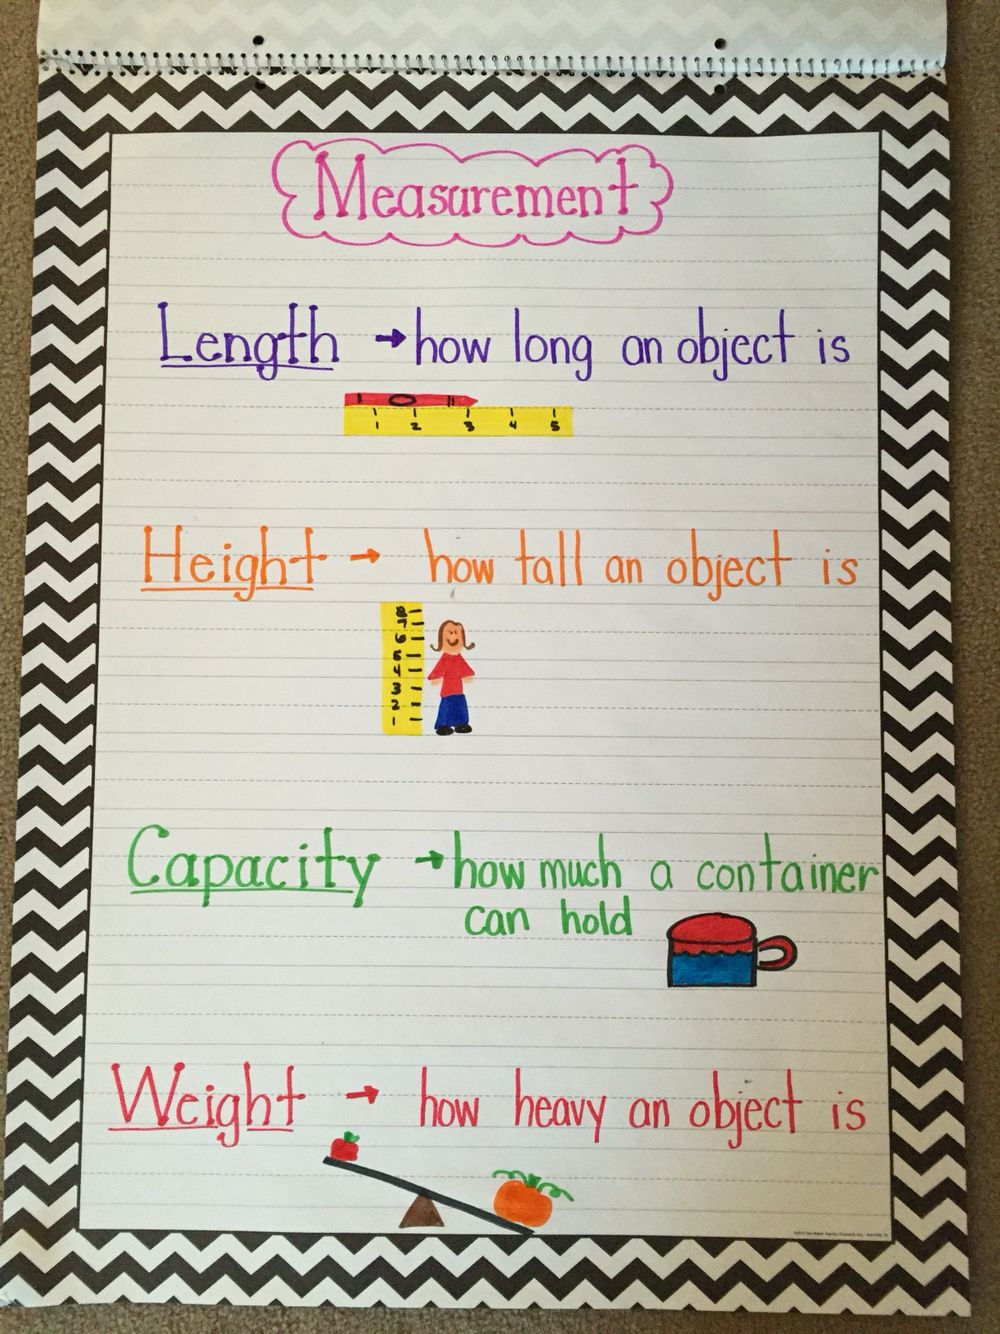 Measurement
Length → how long an object is
1 2 3 4 5
Height → how tall an object is
8
7
6
5
4
3
2
1
Capacity → how much a container
can hold
Weight → how heavy an object is